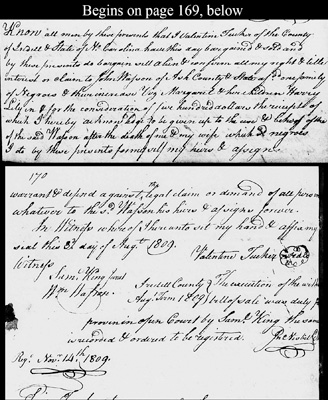 Begins on page 169, below
Know all men by these presents that I Valentine Tucker of the County
of Iredell & State of No Carolina have this day bargained & sold and
by these presents do bargain sell alien & confirm all my right & title
interest or claim to John Wasson of Ash County & State of one family
of Negroes & their increase Viz Margaret & her children Harry
for the consideration of five hundred dollars the receipt of
which I hereby acknowledge to be given up to the use & behoof of the
of the said Wasson after the death of me & my wife which sd negroes
I do by these presents for my heirs & assigns
170
warrant & defend against the legal claim or demand of all persons
whatever to the sd. Wasson his heirs & assigns forever.
In Witness whereof I hereunto set my hand & affix my
seal this day of Augt. 1809.
Valentine Tucker Seal
Witness
Saml. King Jurat
Wm
Iredell County The execution of the within
Aug. Term 1809 bill of sale was duly
proven in open Court by Saml. King
recorded & ordered to be registered.
Reg. Nov. 14th. 1809.